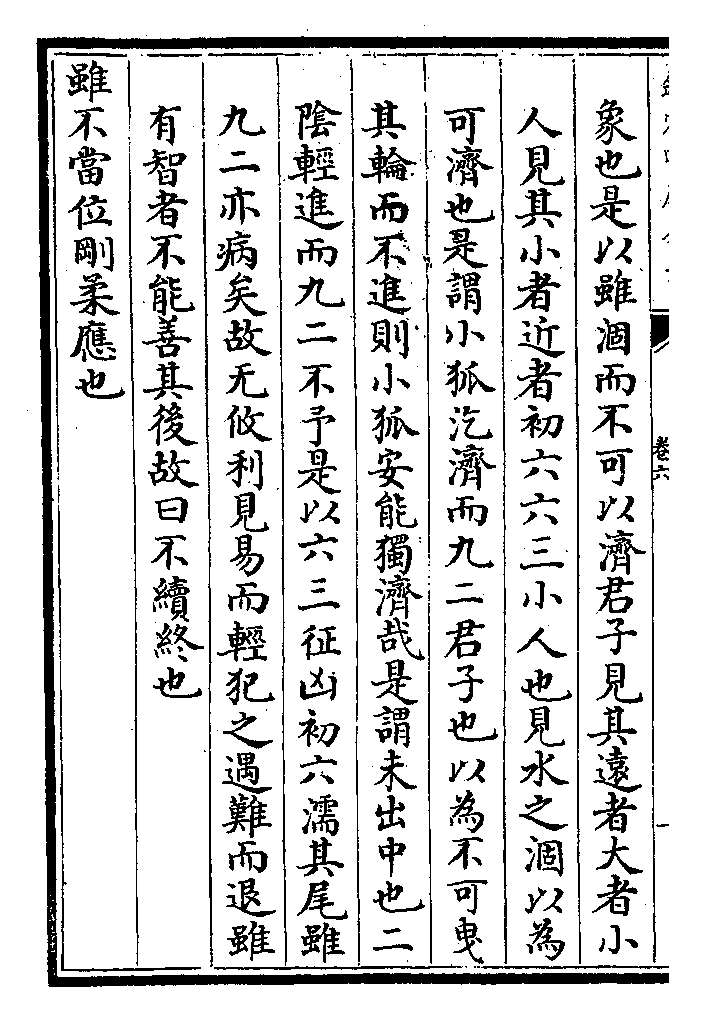 象也是以雖涸而不可以濟君子見其遠者大者小
人見其小者近者初六六三小人也見水之涸以為
可濟也是謂小狐汔濟而九二君子也以為不可曳
其輪而不進則小狐安能獨濟哉是謂未出中也二
陰輕進而九二不予是以六三征凶初六濡其尾雖
九二亦病矣故无攸利見易而輕犯之遇難而退雖
有智者不能善其後故曰不續終也
雖不當位剛柔應也
卷六